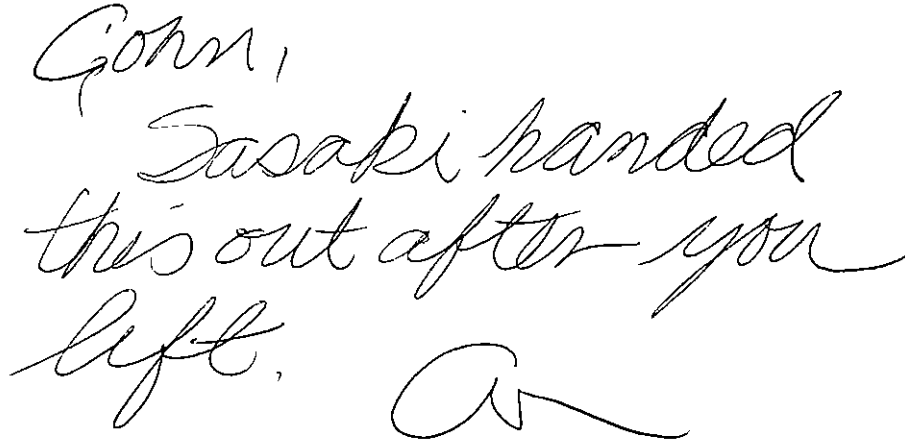 John,
Sasaki handed
this out after you
left.